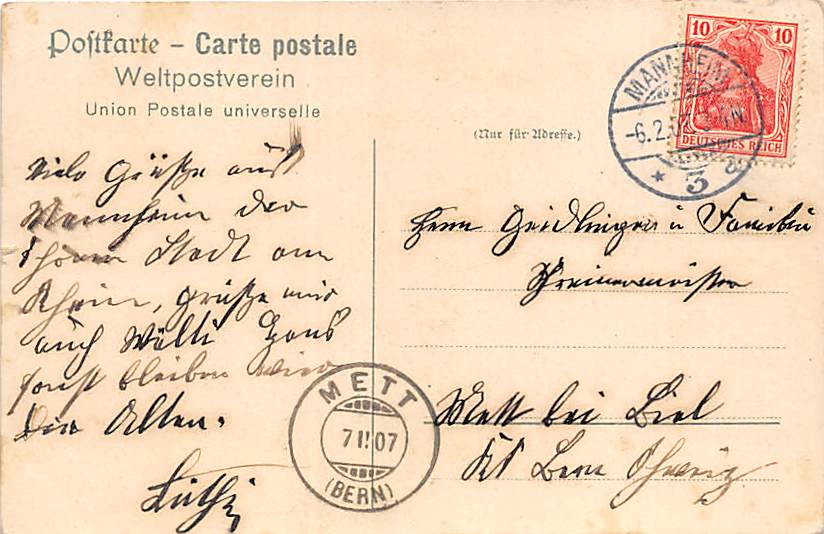 Postkarte – Carte postale
Weltpostverein
Union Postale universelle
(Nur für Adresse.)
10 10
DEUTSCHES REICH
MANNHEIM
-6.2.07
* 3
Viele Grüße aus
Mannheim der
schönen Stadt am
Rhein, grüße mir
auch Wälti Hans
sonst bleiben wir
die Alten.
Lüthi
Herrn Geidlinger u Familie
Schreinermeister
Mett bei Biel
Kt Bern Schweiz
METT
7 II 07
(BERN)